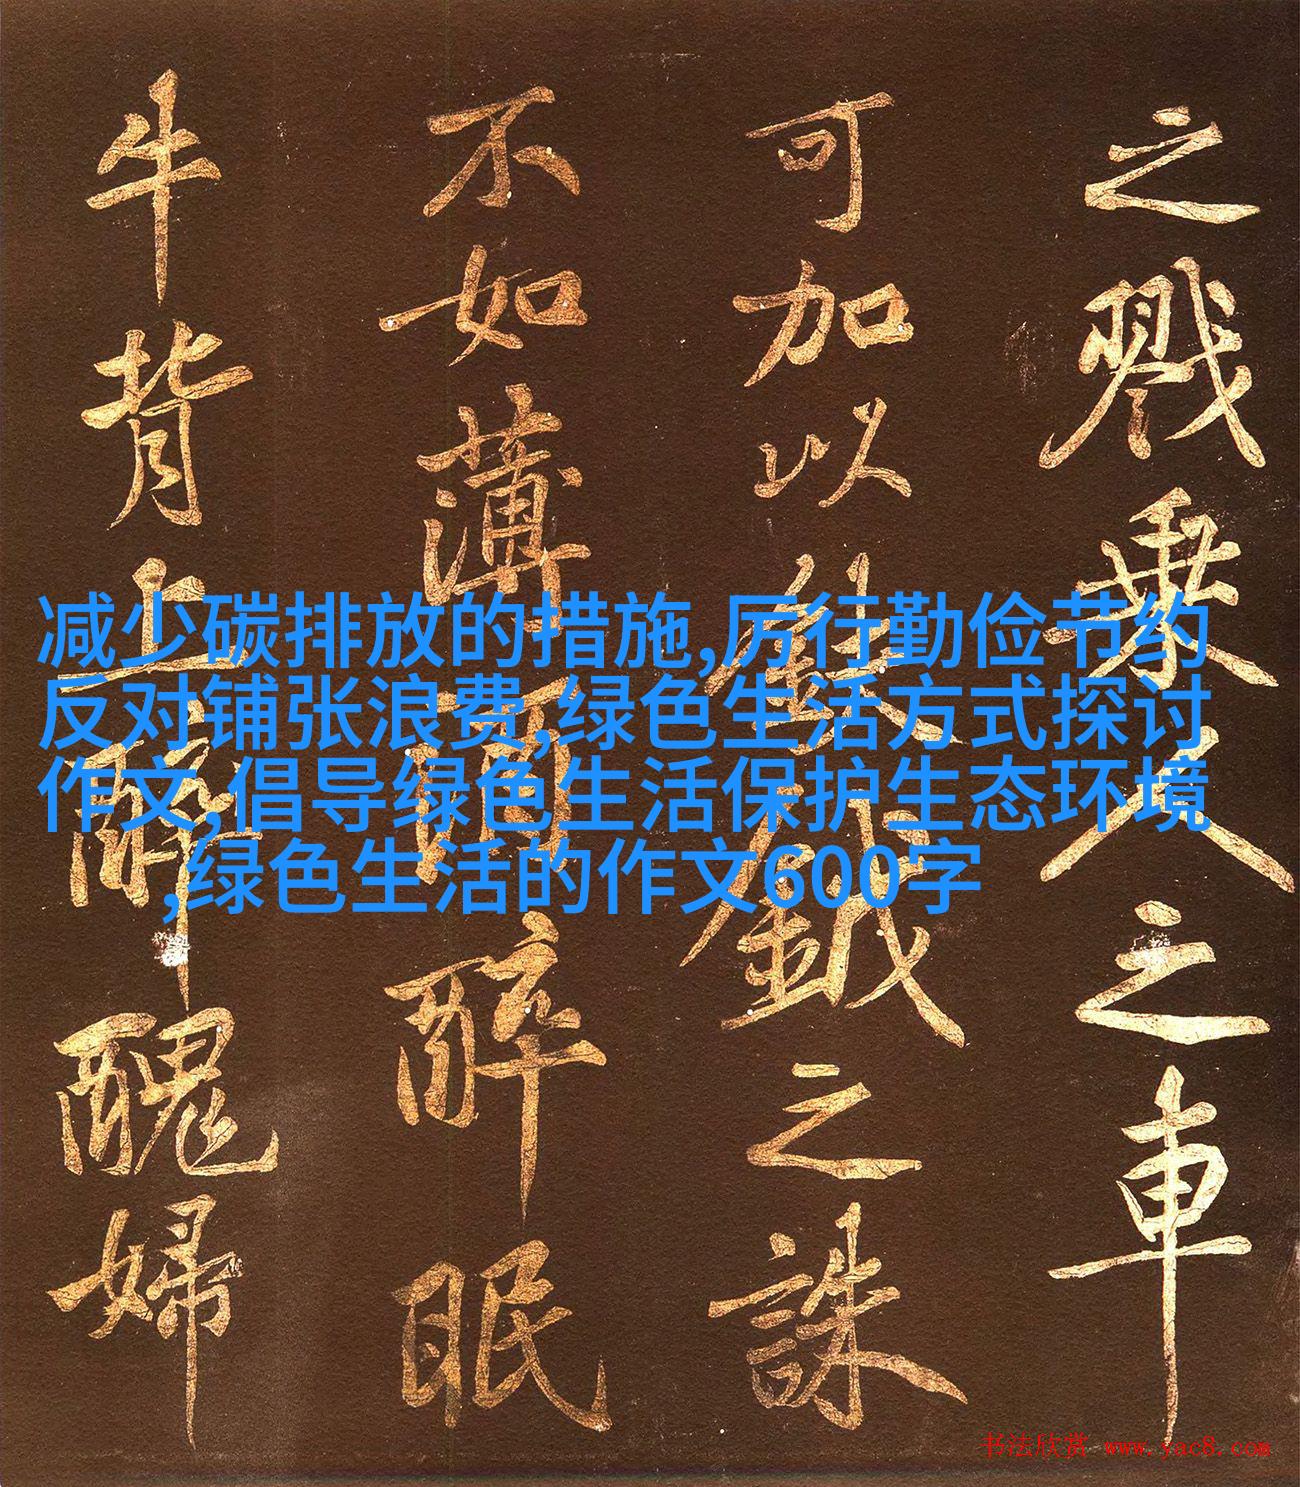 之戮乘人之車
可加以鈇鉞之誅
不如薄酒醉眠
牛背上醉醜婦
减少碳排放的措施,厉行勤俭节约
反对铺张浪费,绿色生活方式探讨
作文,倡导绿色生活保护生态环境
,绿色生活的作文600字
书法欣赏 www.yac8.com